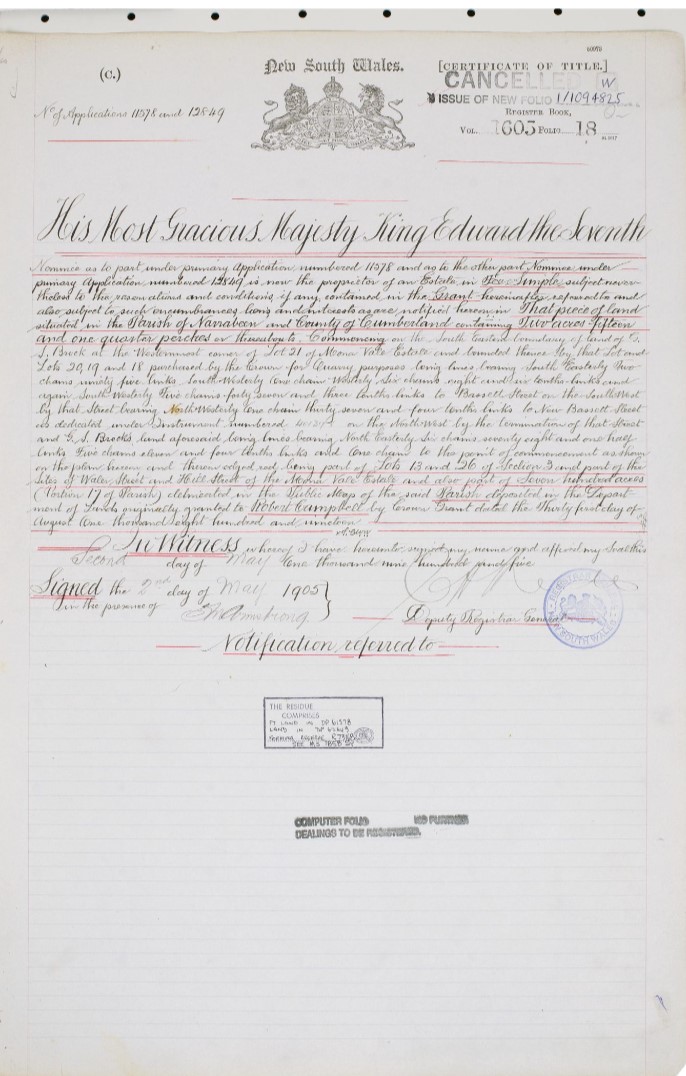 (C.)
New South Wales.
[CERTIFICATE OF TITLE.]
CANCELLED
W
ISSUE OF NEW FOLIO 1/1094825
Nos of Applications 11578 and 12849
REGISTER BOOK,
VOL. 1605 FOLIO 18
His Most Gracious Majesty King Edward the Seventh
Nominee as to part under primary Application numbered 11578 and as to the other part Nominee under
primary Application numbered 12849 is now the proprietor of an Estate in Fee Simple subject never-
theless to the reservations and conditions, if any, contained in the Grant hereinafter referred to and
also subject to such encumbrances liens and interests as are notified hereon in That piece of land
situated in the Parish of Narrabeen and County of Cumberland containing Two acres fifteen
and one quarter perches or thereabouts. Commencing on the South Eastern boundary of land of G.
J. Brock at the Westernmost corner of Lot 21 of Mona Vale Estate and bounded thence by that Lot and
Lots 20, 19 and 18 purchased by the Crown for Quarry purposes being lines bearing South Easterly Two
chains ninety five links, South Westerly One chain Westerly Six chains eight and six tenths links and
again South Westerly Five chains forty seven and three tenths links to Bassett Street on the South West
by that Street bearing North Westerly One chain thirty seven and four tenths links to New Bassett Street
as dedicated under Instrument numbered on the North West by the termination of that Street
and G. J. Brock's land aforesaid being lines bearing North Easterly Six chains seventy eight and one half
links Five chains eleven and four tenths links and One chain to the point of commencement as shown
on the plan hereon and therein edged red being part of Lots 13 and 26 of Section 3 and part of the
sites of Water Street and Hill Street of the Mona Vale Estate and also part of Seven hundred acres
(Portion 17 of Parish) delineated in the Public Map of the said Parish deposited in the Depart-
ment of Lands originally granted to Robert Campbell by Crown Grant dated the Thirty first day of
August One thousand eight hundred and nineteen
In Witness whereof I have hereunto signed my name and affixed my Seal this
Second day of May One thousand nine hundred and five
Signed the 2nd day of May 1905
in the presence of Armstrong
Deputy Registrar General
Notification referred to
THE RESIDUE
COMPRISES
PT LAND IN DP 61578
LAND IN DP
COMPUTER FOLIO NO FURTHER
DEALINGS TO BE REGISTERED.